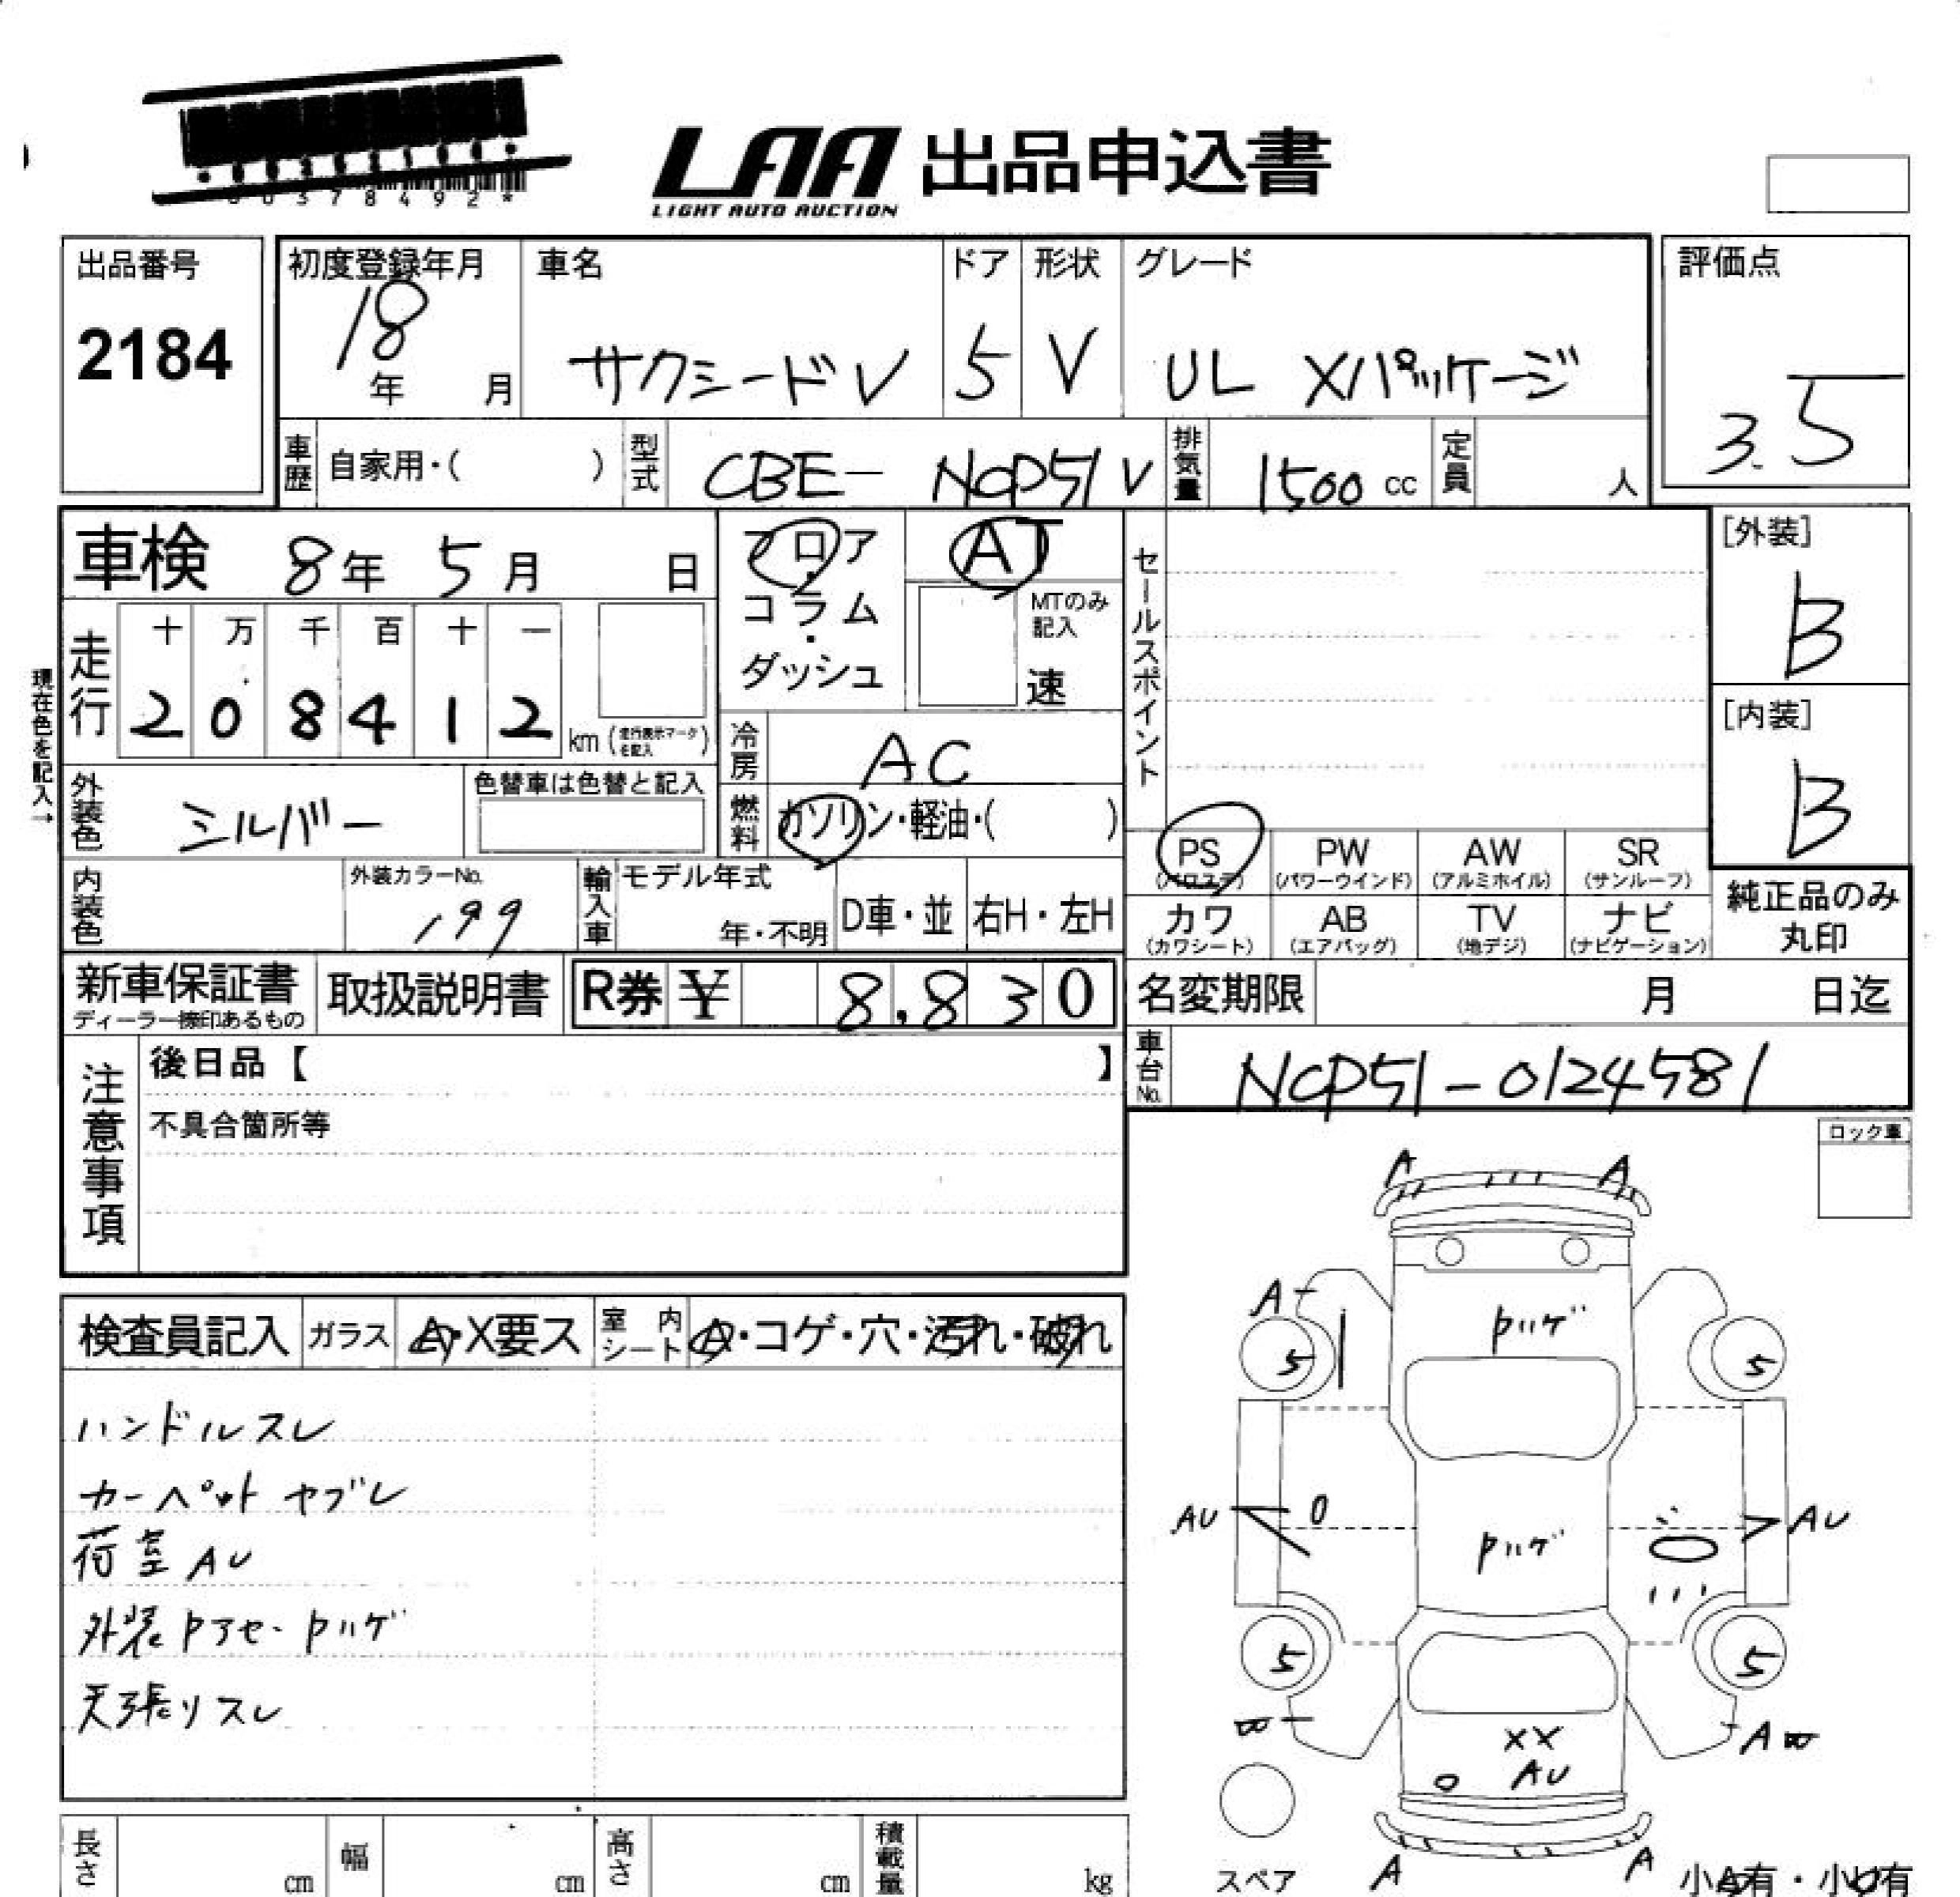 LAA 出品申込書
LIGHT AUTO AUCTION
出品番号
2184
初度登録年月
18年 月
車名
サクシードV
ドア
5
形状
V
グレード
UL Xパッケージ
評価点
3.5
車歴 自家用・( )
型式 CBE- NCP51V
排気量 1500 cc
定員 人
車検 8年 5月 日
フロア・コラム・ダッシュ
AT
MTのみ記入
速
セールスポイント
[外装]
B
[内装]
B
現在色を記入→
走行
十 万 千 百 十 一
2 0 8 4 1 2 km (走行表示マークを記入)
冷房 AC
外装色 シルバー
色替車は色替と記入
燃料 ガソリン・軽油・( )
PS (パワステ)
PW (パワーウインド)
AW (アルミホイル)
SR (サンルーフ)
カワ (カワシート)
AB (エアバッグ)
TV (地デジ)
ナビ (ナビゲーション)
純正品のみ丸印
内装色
外装カラーNo.
199
輸入車 モデル年式
年・不明
D車・並 右H・左H
新車保証書
ディーラー捺印あるもの
取扱説明書
R券 ¥ 8,830
名変期限 月 日迄
車台No. NCP51-0124581
注意事項
後日品【 】
不具合箇所等
ロック車
検査員記入 ガラス A・X要ス 室内シート A・コゲ・穴・汚れ・破れ
ハンドルスレ
カーペットヤブレ
荷室AU
外装Pアセ・Pハゲ
天張りスレ
A A
A
Pハゲ
5 5
AU
Pハゲ
AU
5 5
A
XX
AU
スペア
A A
小A有・小U有
長さ cm
幅 cm
高さ cm
積載量 kg